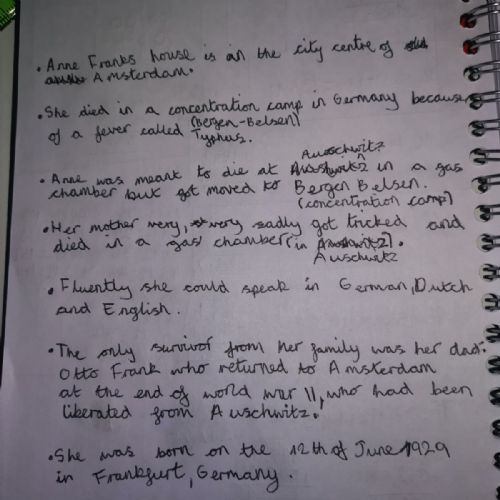 • Anne Franks house is in the city centre of
Amsterdam.
• She died in a concentration camp in Germany because
(Bergen-Belsen)
of a fever called Typhus.
Auschwitz
• Anne was meant to die at in a gas
chamber but got moved to Bergen Belsen.
(concentration camp)
• Her mother very, very sadly got tricked and
died in a gas chamber (in ).
Auschwitz
• Fluently she could speak in German, Dutch
and English.
• The only survivor from her family was her dad.
Otto Frank who returned to Amsterdam
at the end of world war II, who had been
liberated from Auschwitz.
• She was born on the 12th of June 1929
in Frankfurt, Germany.